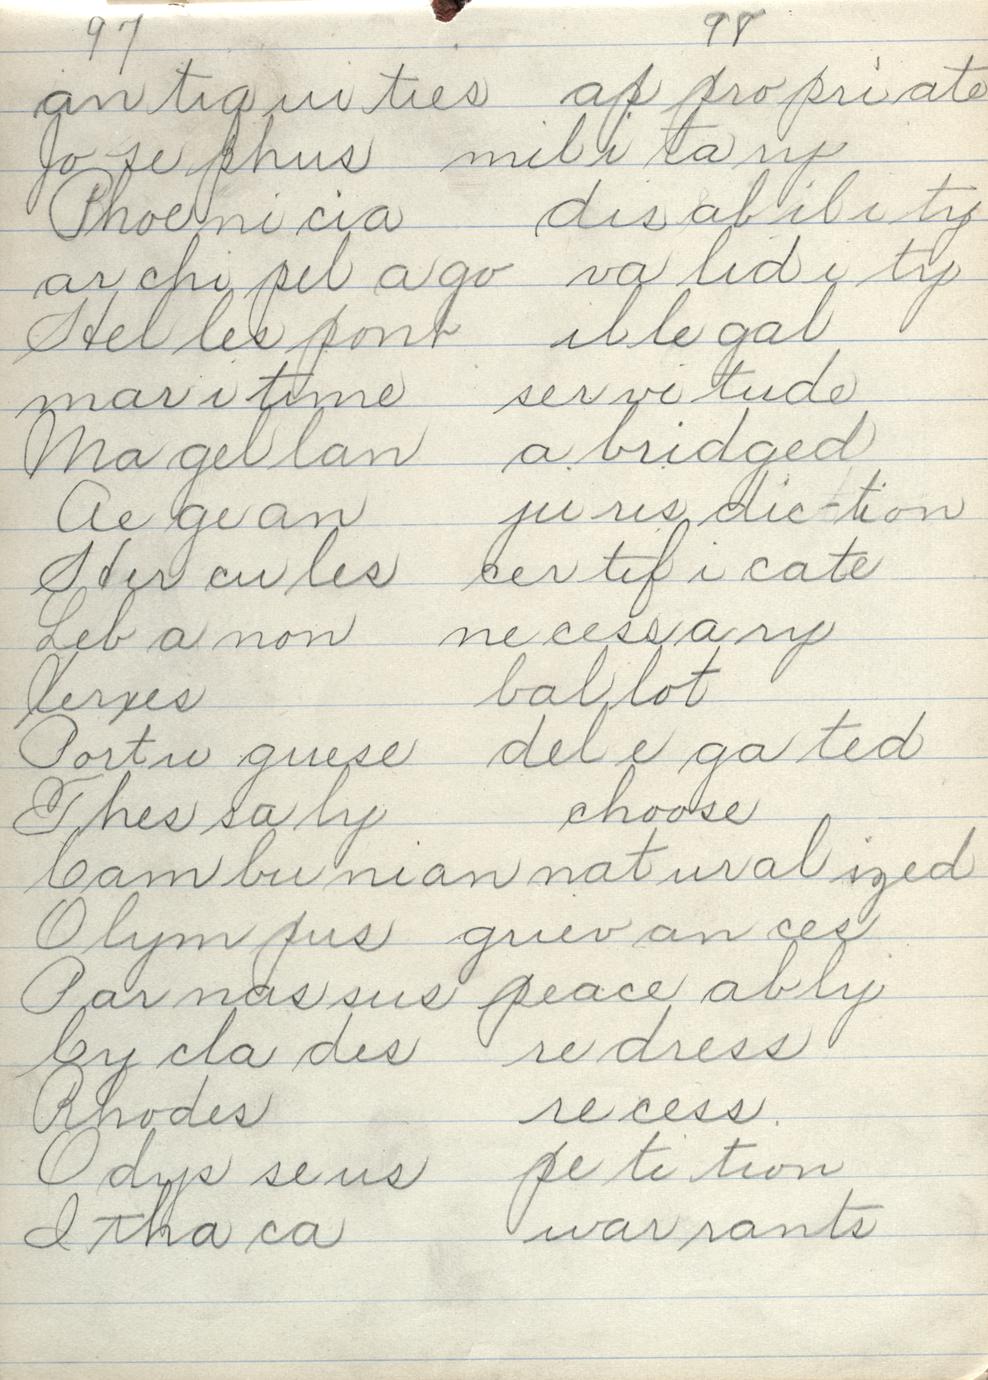 97 98
an tiq ui ties ap propri ate
Jo se phus mil i ta ry
Phoe ni cia dis ab il i ty
ar chi pel a go va lid i ty
Hel les pont il le gal
mar i time ser vi tude
Ma gel lan a bridged
Ae ge an ju ris dic-tion
Her cu les cer tif i cate
Leb a non ne cess a ry
Xerxes bal lot
Portu guese del e ga ted
Thes sa ly choose
Cam bu nian nat ural ized
Olym pus griev an ces
Par nas sus peace ably
Cy cla des re dress
Rhodes re cess.
Odys se us pe ti tion
I tha ca war rants